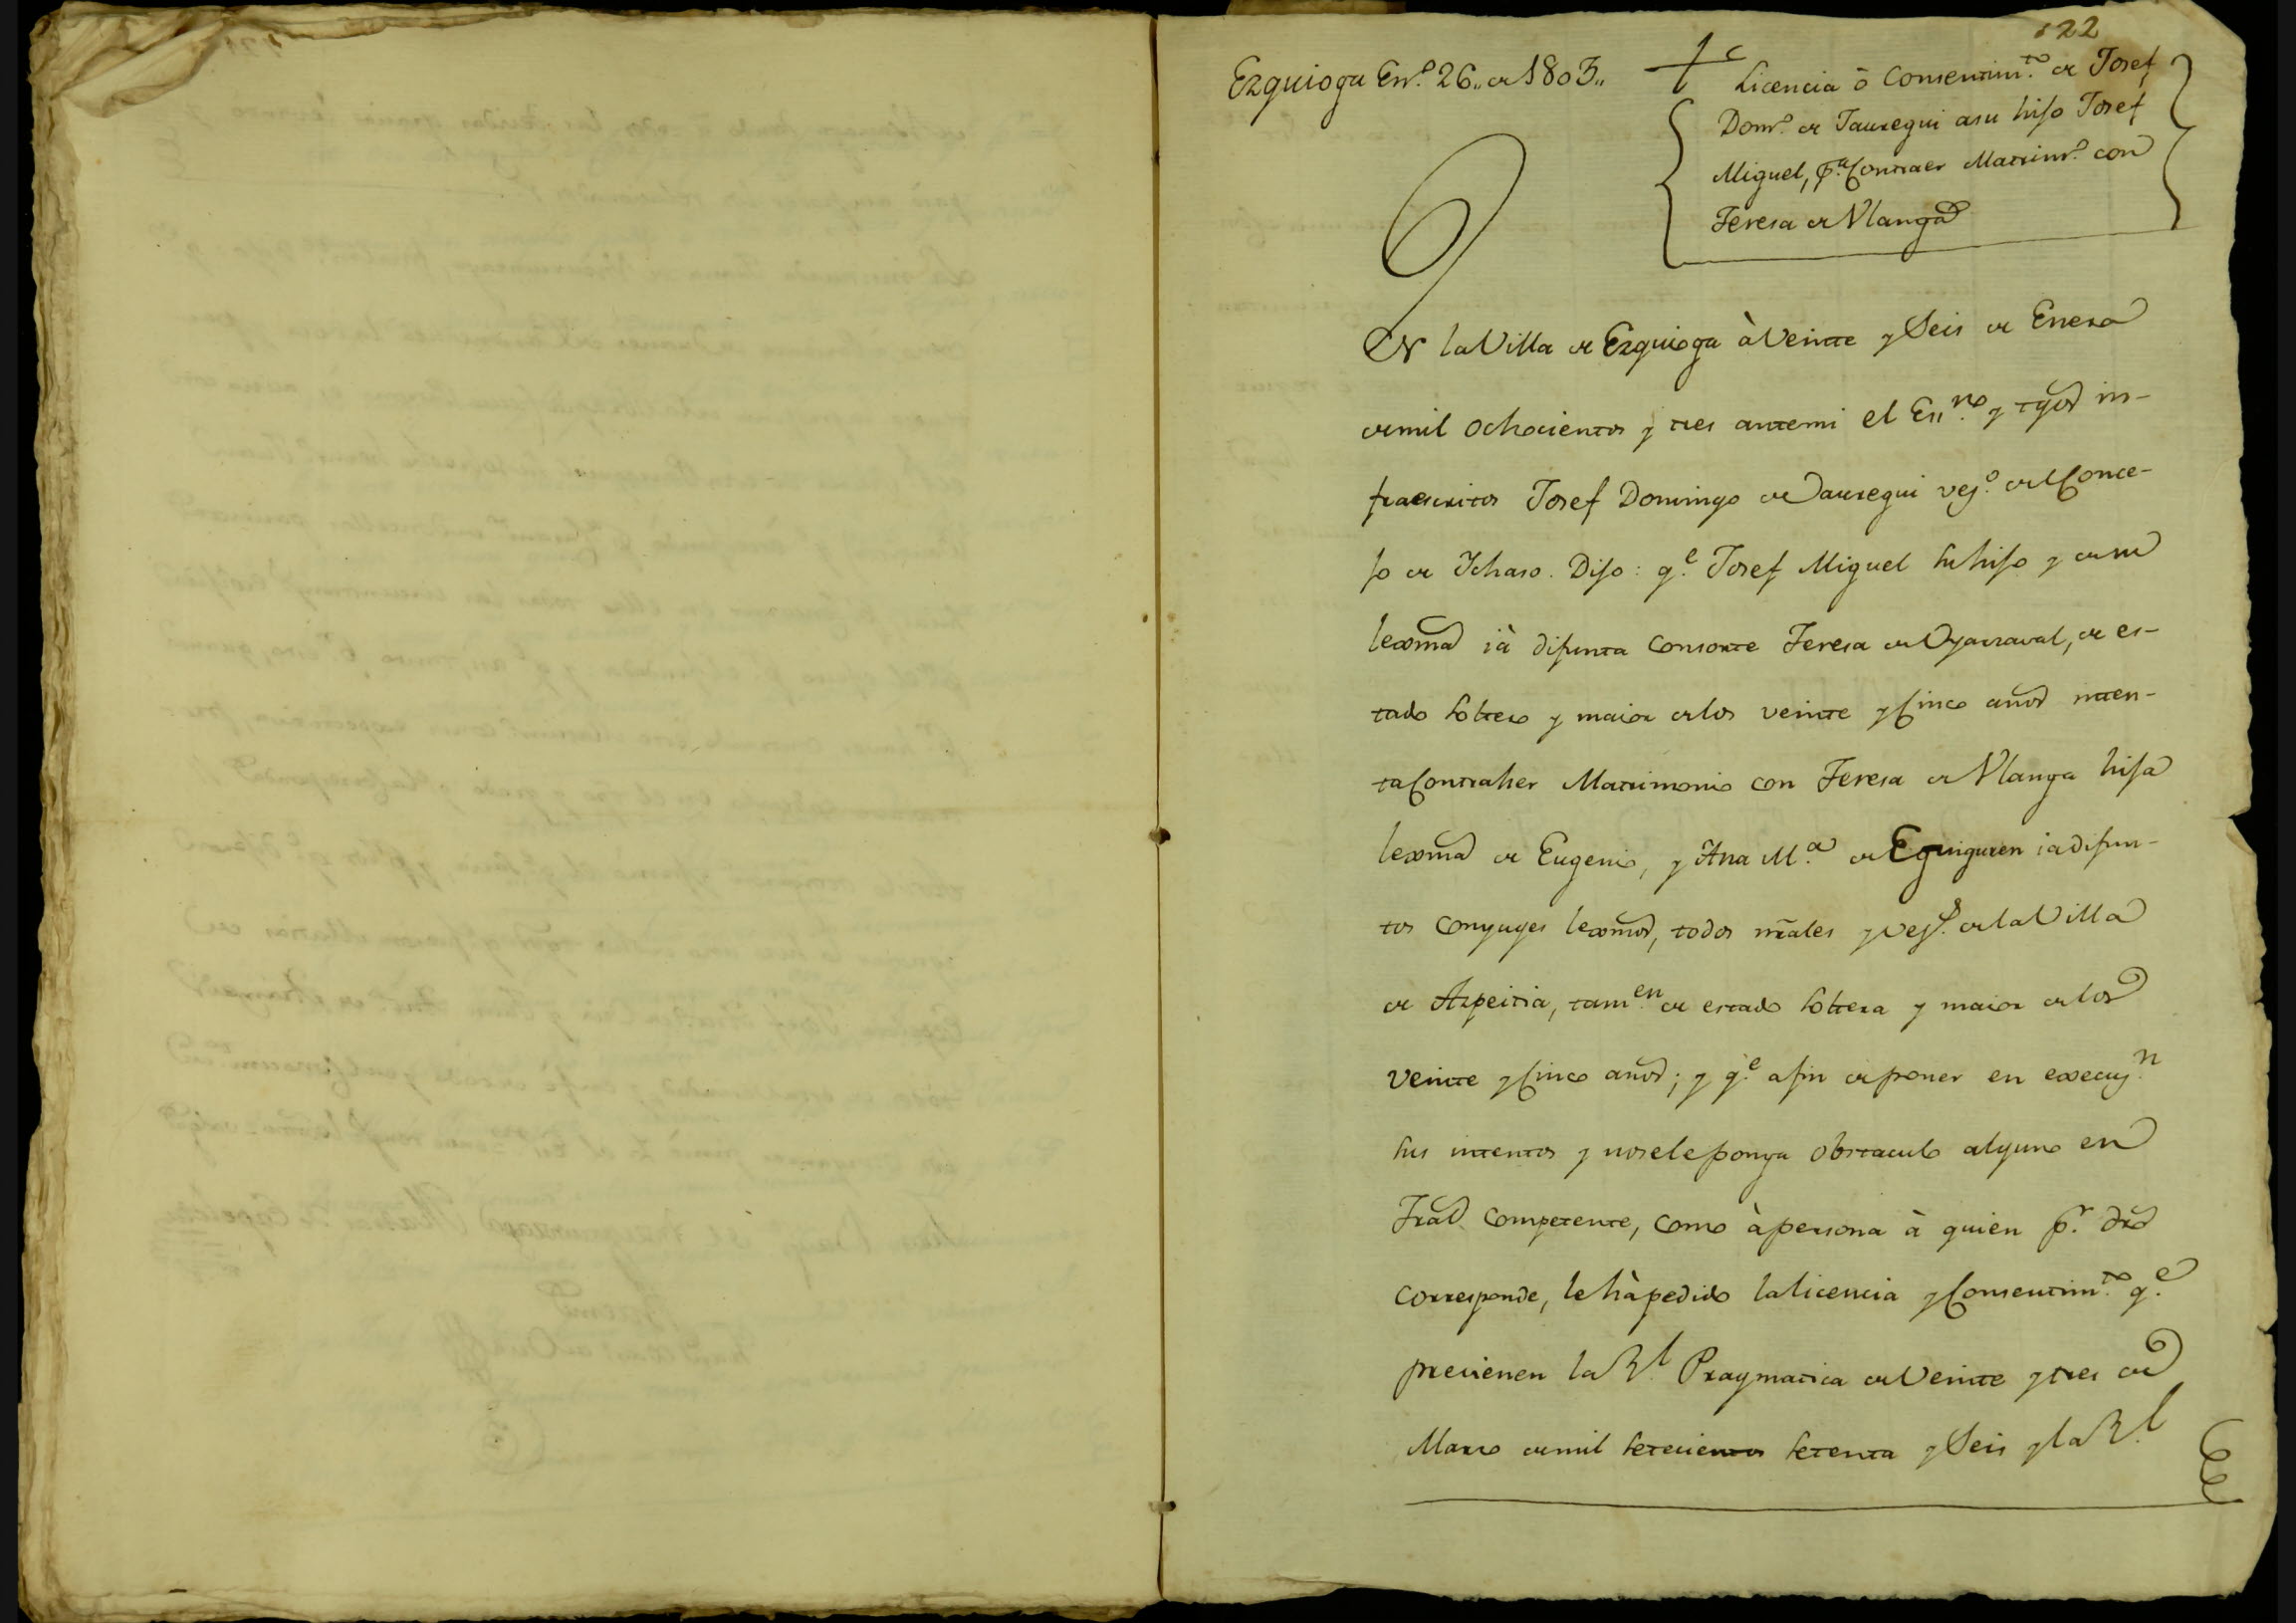 122
Ezquioga En.º 26,, de 1803,,
Licencia ò Consentim.to de Josef
Dom.º de Jauregui asu hijo Josef
Miguel, p.a Contraer Matrim.º con
Teresa de Vlanga
En la Villa de Ezquioga à Veinte y Seis de Enero
de mil Ochocientos y tres antemi el Es.no y tgos in-
fraescritos Josef Domingo de Jauregui vez.º del Conce-
jo de Ichaso. Dijo: q.e Josef Miguel su hijo y de su
lexma ià difunta Consorte Teresa de Oyarzaval, de es-
tado soltero y maior de los veinte y Cinco años inten-
ta Contraher Matrimonio con Teresa de Vlanga hija
lexma de Eugenio, y Ana M.a de Eguiguren ia difun-
tos Conyuges lexmos, todos nrales y vez.s de la Villa
de Azpeitia, tam.en de estado soltera y maior de los
Veinte y Cinco años; y q.e afin de poner en execuz.n
sus intentos y nosele ponga obstaculo alguno en
Tral Competente, como à persona à quien p.r dro
corresponde, le hà pedido la licencia y Consentim.to q.e
previenen la R.l Pragmatica de Veinte y tres de
Marzo de mil setecientos setenta y Seis y la R.l